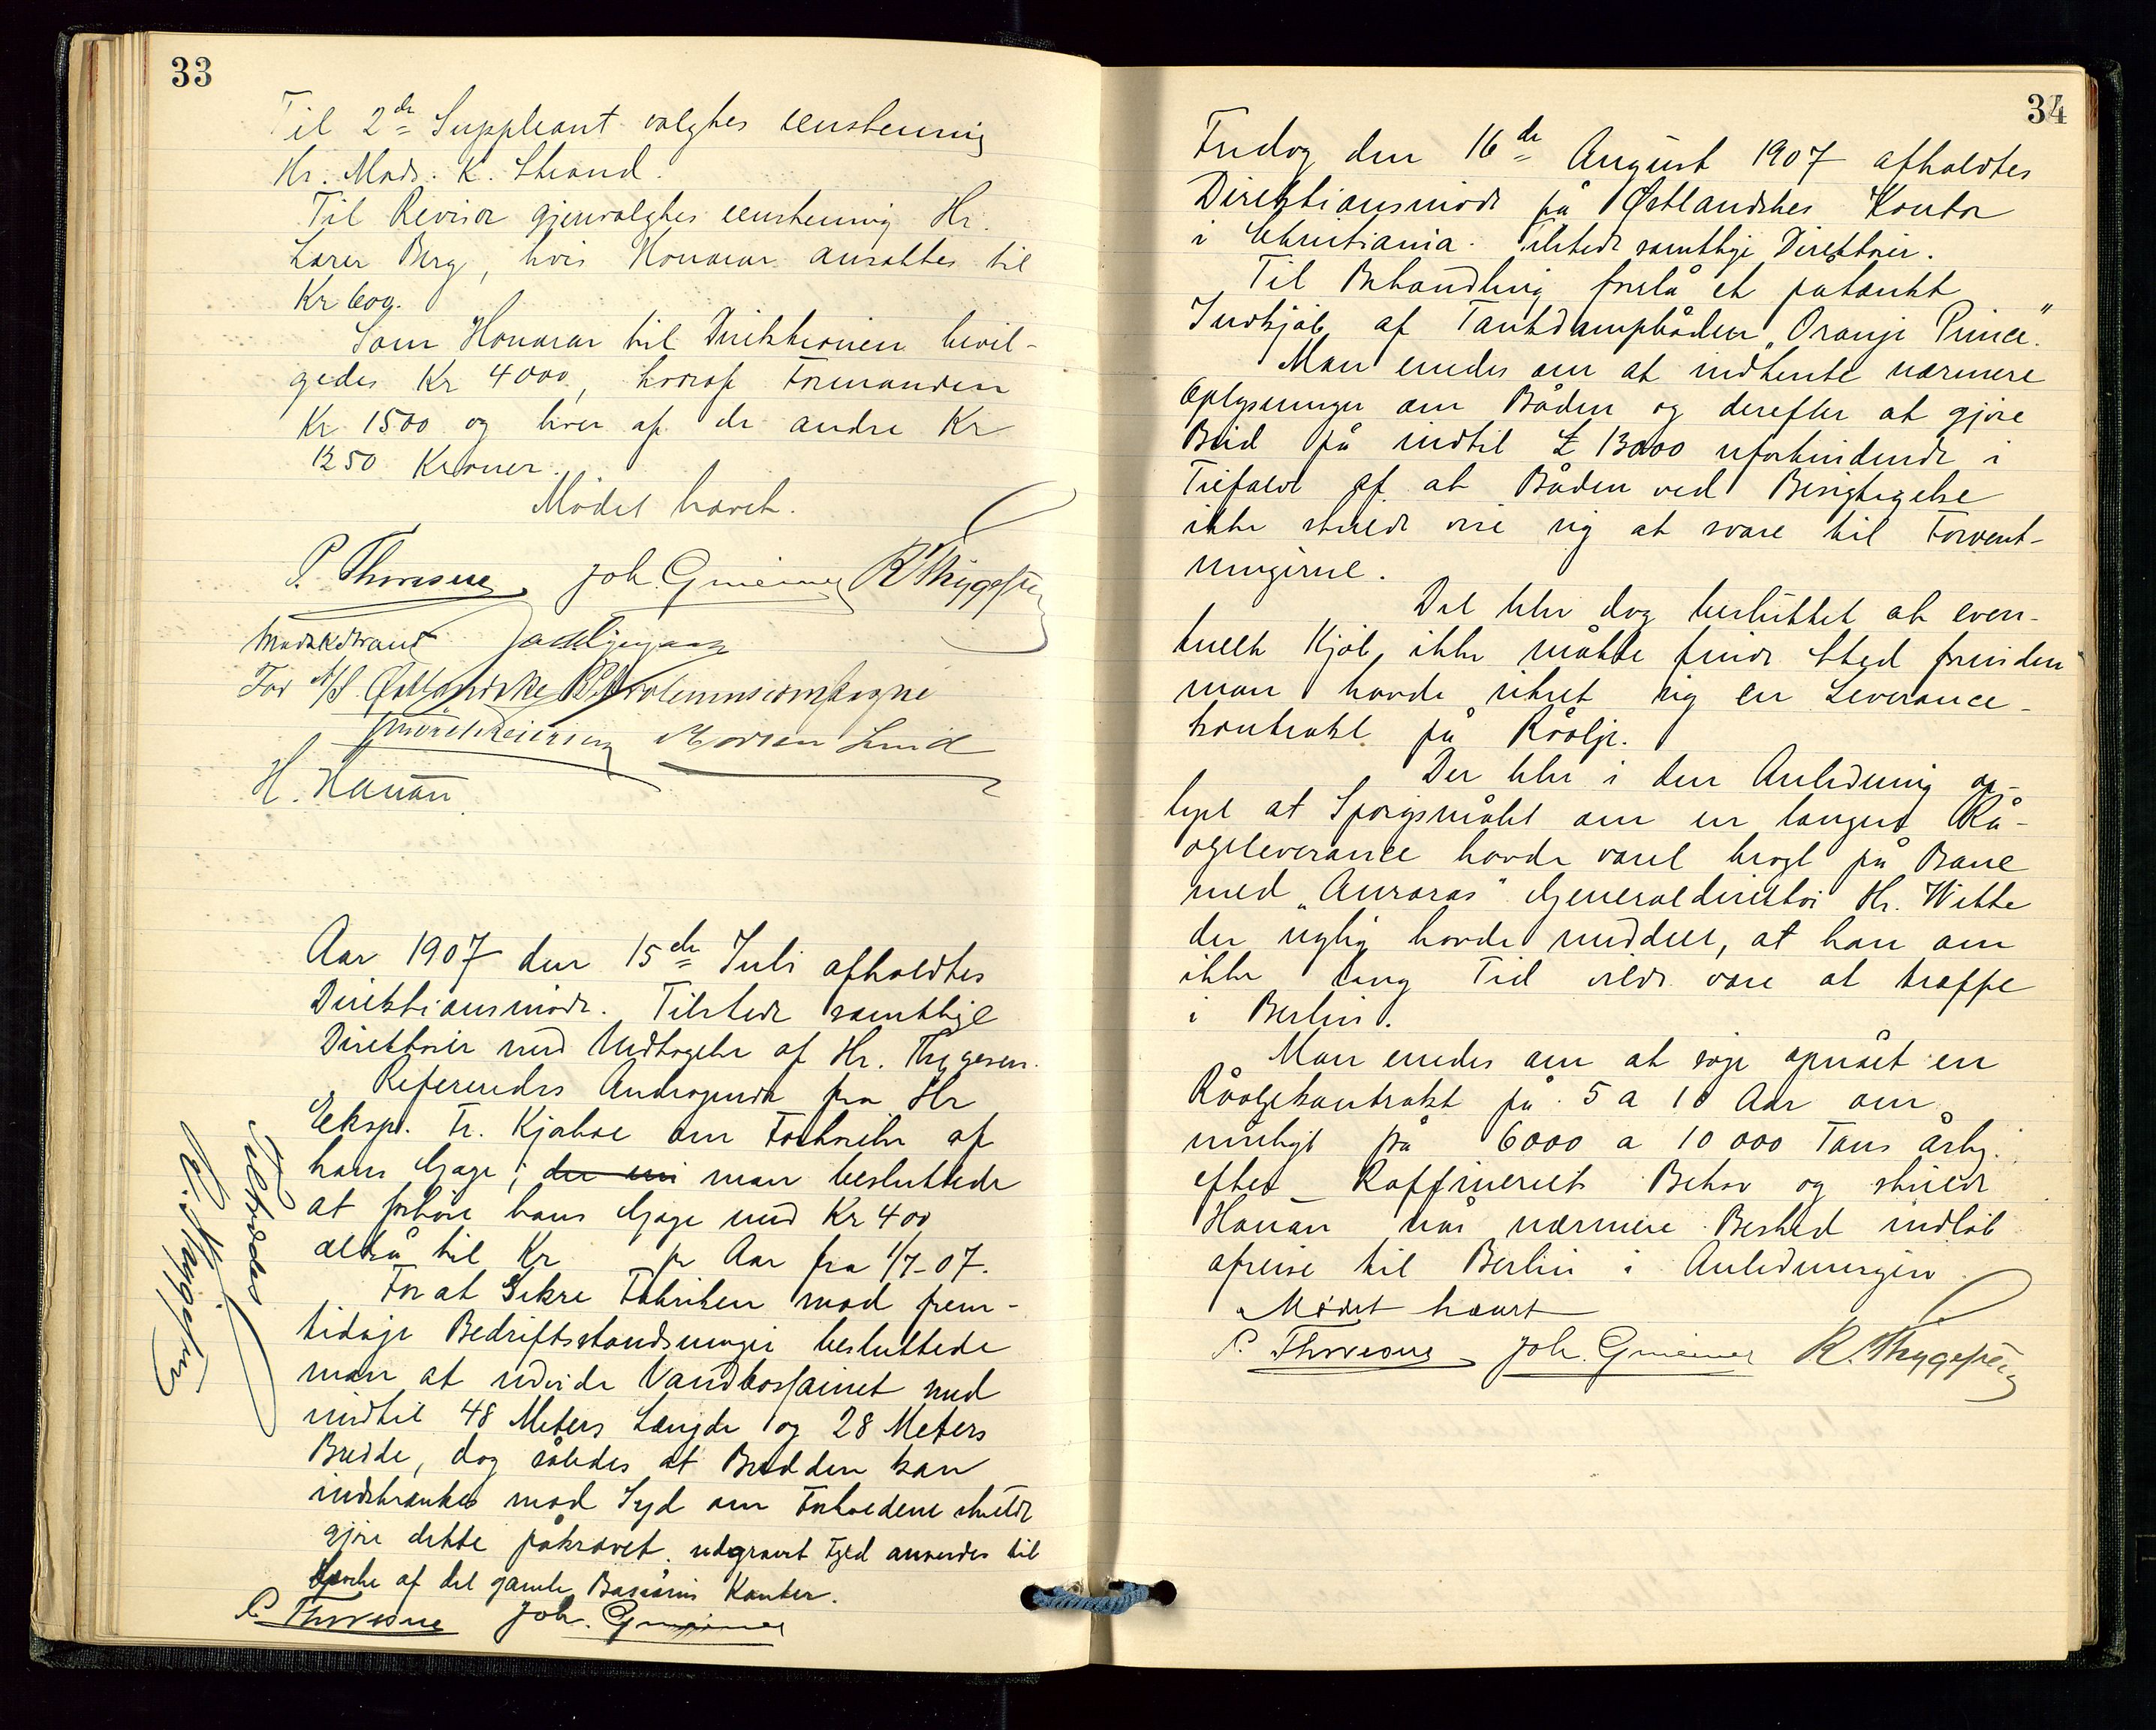 33
Til 2de Suppleant valgtes eenstemmig
Hr. Mads. K. Strand.
Til Revisor gjenvalgtes eenstemmig Hr.
Lærer Berg, hvis Honorar ansattes til
Kr 600.
Som Honorar til Direktionen bevil-
gedes Kr 4000, hvoraf Formanden
Kr 1500 og hver af de andre Kr
1250 Kroner.
Mødet hævet.
P. Thoresne Joh. Gmeiner R Thygesen
Mads K Strand
For A/S Østlandske Petroleumscompagni
Morten Lind
H. Hanan
Aar 1907 den 15de Juli afholdtes
Direktionsmöde. Tilstede samtlige
Direktörer med Undtagelse af Hr. Thygesen.
Refereredes Andragende fra Hr
Eksp. Fr. Kjørboe om Forhöielse af
hans Gage; man besluttede
at forhöie hans Gage med Kr 400
altså til Kr pr Aar fra 1/7-07.
For at Sikre Fabriken mod frem-
tidige Bedriftsstandsninger besluttede
man at udvide Vandbassainet med
indtil 48 Meters Længde og 28 Meters
Bredde, dog således at Bredden kan
indskrænkes mod Syd om Forholdene skulde
gjöre dette påkrævet. udgravet Fyld anvendes til
af det gamle Bassains Kanter.
P. Thoresne Joh. Gmeiner
Tiltrædes
R. Thygesen
34
Fredag den 16de August 1907 afholdtes
Direktionsmöde på Østlandskes Kontor
i Christiania. Tilstede samtlige Direktörer.
Til Behandling forelå et patænkt
Indkjöb af Tankdampbåden „Oranje Prince".
Man enedes om at indhente nærmere
Oplysninger om Båden og derefter at gjöre
Bud på indtil £ 13000 uforbindende i
Tilfælde af at Båden ved Besigtigelse
ikke skulde vise sig at svare til Forvent-
ningerne.
Det blev dog besluttet at even-
tuelt Kjöb ikke måtte finde Sted forinden
man havde sikret sig en Leverance-
kontrakt på Råolje.
Der blev i den Anledning op-
lyst at Spörgsmålet om en længere Rå-
oljeleverance havde været bragt på Bane
med „Auroras" Generaldirektör Hr. Witte
der nylig havde meddelt, at han om
ikke lang Tid vilde være at træffe
i Berlin.
Man enedes om at söge opnået en
Råoljekontrakt på 5 a 10 Aar om
muligt på 6000 a 10 000 Tons årlig.
efter Raffineriets Behov og skulde
Hanan når nærmere Besked indlöb
afreise til Berlin i Anledningen
Mødet hævet
P. Thoresne Joh. Gmeiner R. Thygesen